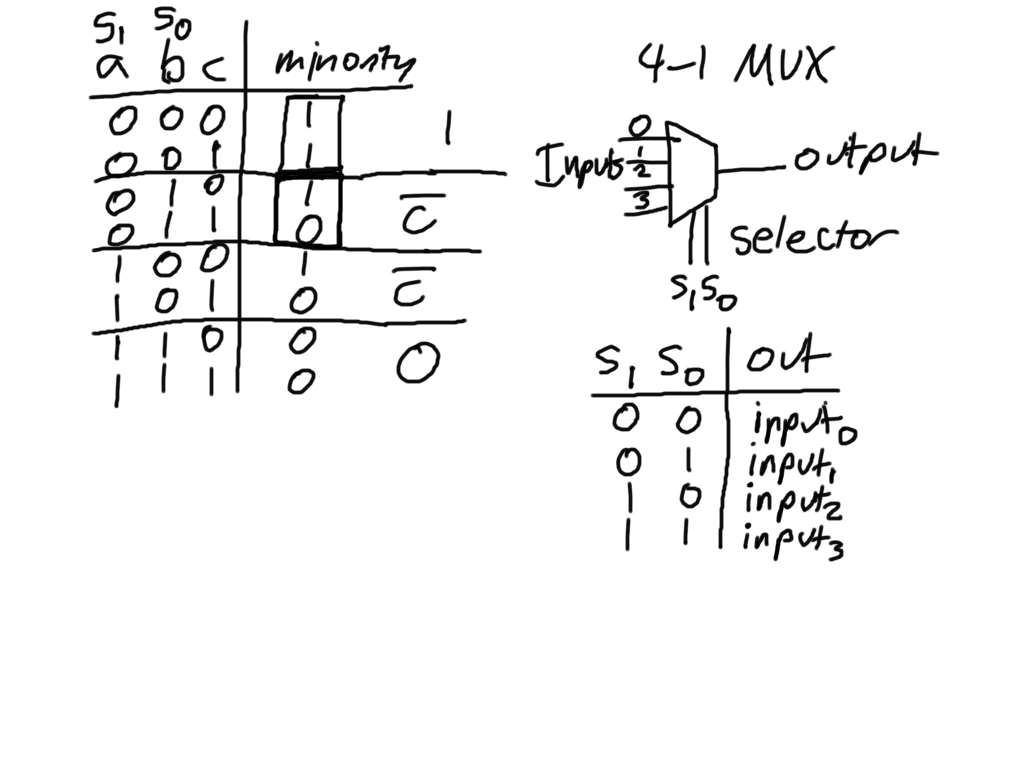 S₁ S₀
a b c minority
0 0 0 1
0 0 1 1
1
0 1 0 1
0 1 1 0
c̅
1 0 0 1
1 0 1 0
c̅
1 1 0 0
1 1 1 0
0
4-1 MUX
0
1
2
3
Inputs
output
selector
S₁ S₀
S₁ S₀ out
0 0 input₀
0 1 input₁
1 0 input₂
1 1 input₃